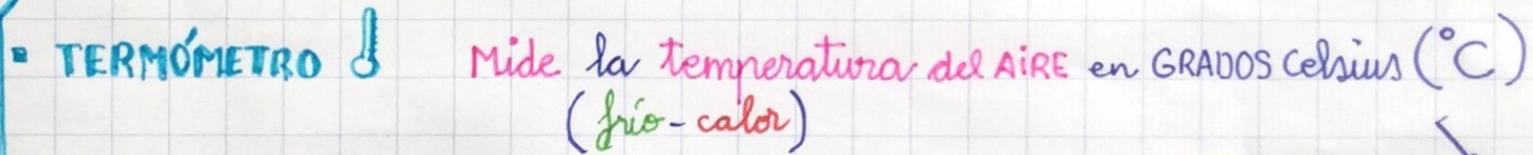 ▪ TERMÓMETRO Mide la temperatura del AIRE en GRADOS Celsius (°C)
(frío - calor)